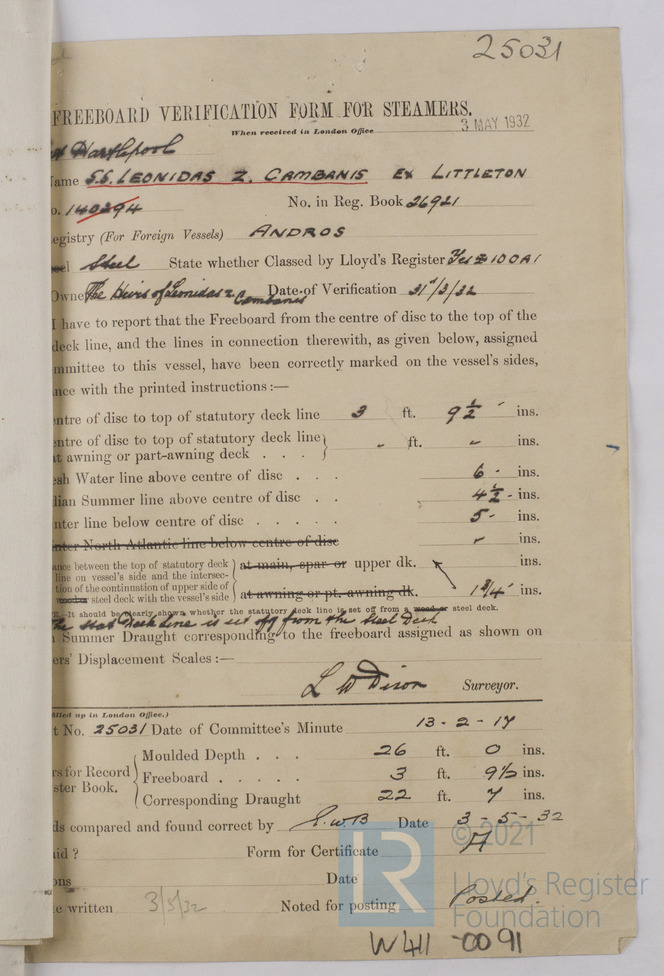 25031
FREEBOARD VERIFICATION FORM FOR STEAMERS.
When received in London Office 3 MAY 1932
st Hartlepool
Name S.S. LEONIDAS Z. CAMBANIS Ex LITTLETON
o. 140294 No. in Reg. Book 26921
egistry (For Foreign Vessels) ANDROS
el Steel State whether Classed by Lloyd's Register Yes 100A1
Owner The Heirs of Leonidas Z. Cambanis Date of Verification 31/3/32
I have to report that the Freeboard from the centre of disc to the top of the
deck line, and the lines in connection therewith, as given below, assigned
mmittee to this vessel, have been correctly marked on the vessel's sides,
nce with the printed instructions:—
ntre of disc to top of statutory deck line 3 ft. 9 1/2 ins.
ntre of disc to top of statutory deck line
at awning or part-awning deck . . . " ft. " ins.
sh Water line above centre of disc . . . 6 - ins.
dian Summer line above centre of disc . . 4 1/2 - ins.
nter line below centre of disc . . . . . 5 - ins.
nter North Atlantic line below centre of disc " ins.
ance between the top of statutory deck
line on vessel's side and the intersec-
tion of the continuation of upper side of
wood or steel deck with the vessel's side
at main, spar or upper dk. ins.
at awning or pt. awning dk. 1 3/4 ins.
—It should be clearly shown whether the statutory deck line is set off from a wood or steel deck.
The Stat Deck Line is set off from the Steel Deck
Summer Draught corresponding to the freeboard assigned as shown on
ers' Displacement Scales:—
L W Dixon Surveyor.
filled up in London Office.)
t No. 25031 Date of Committee's Minute 13-2-17
rs for Record
ster Book.
Moulded Depth . . . 26 ft. 0 ins.
Freeboard . . . . . 3 ft. 9 1/2 ins.
Corresponding Draught 22 ft. 7 ins.
ds compared and found correct by E.W.B Date 3-5-32
aid ? Form for Certificate A
ons Date
te written 3/5/32 Noted for posting Posted.
W411-0091
LR
© 2021
Lloyd's Register
Foundation